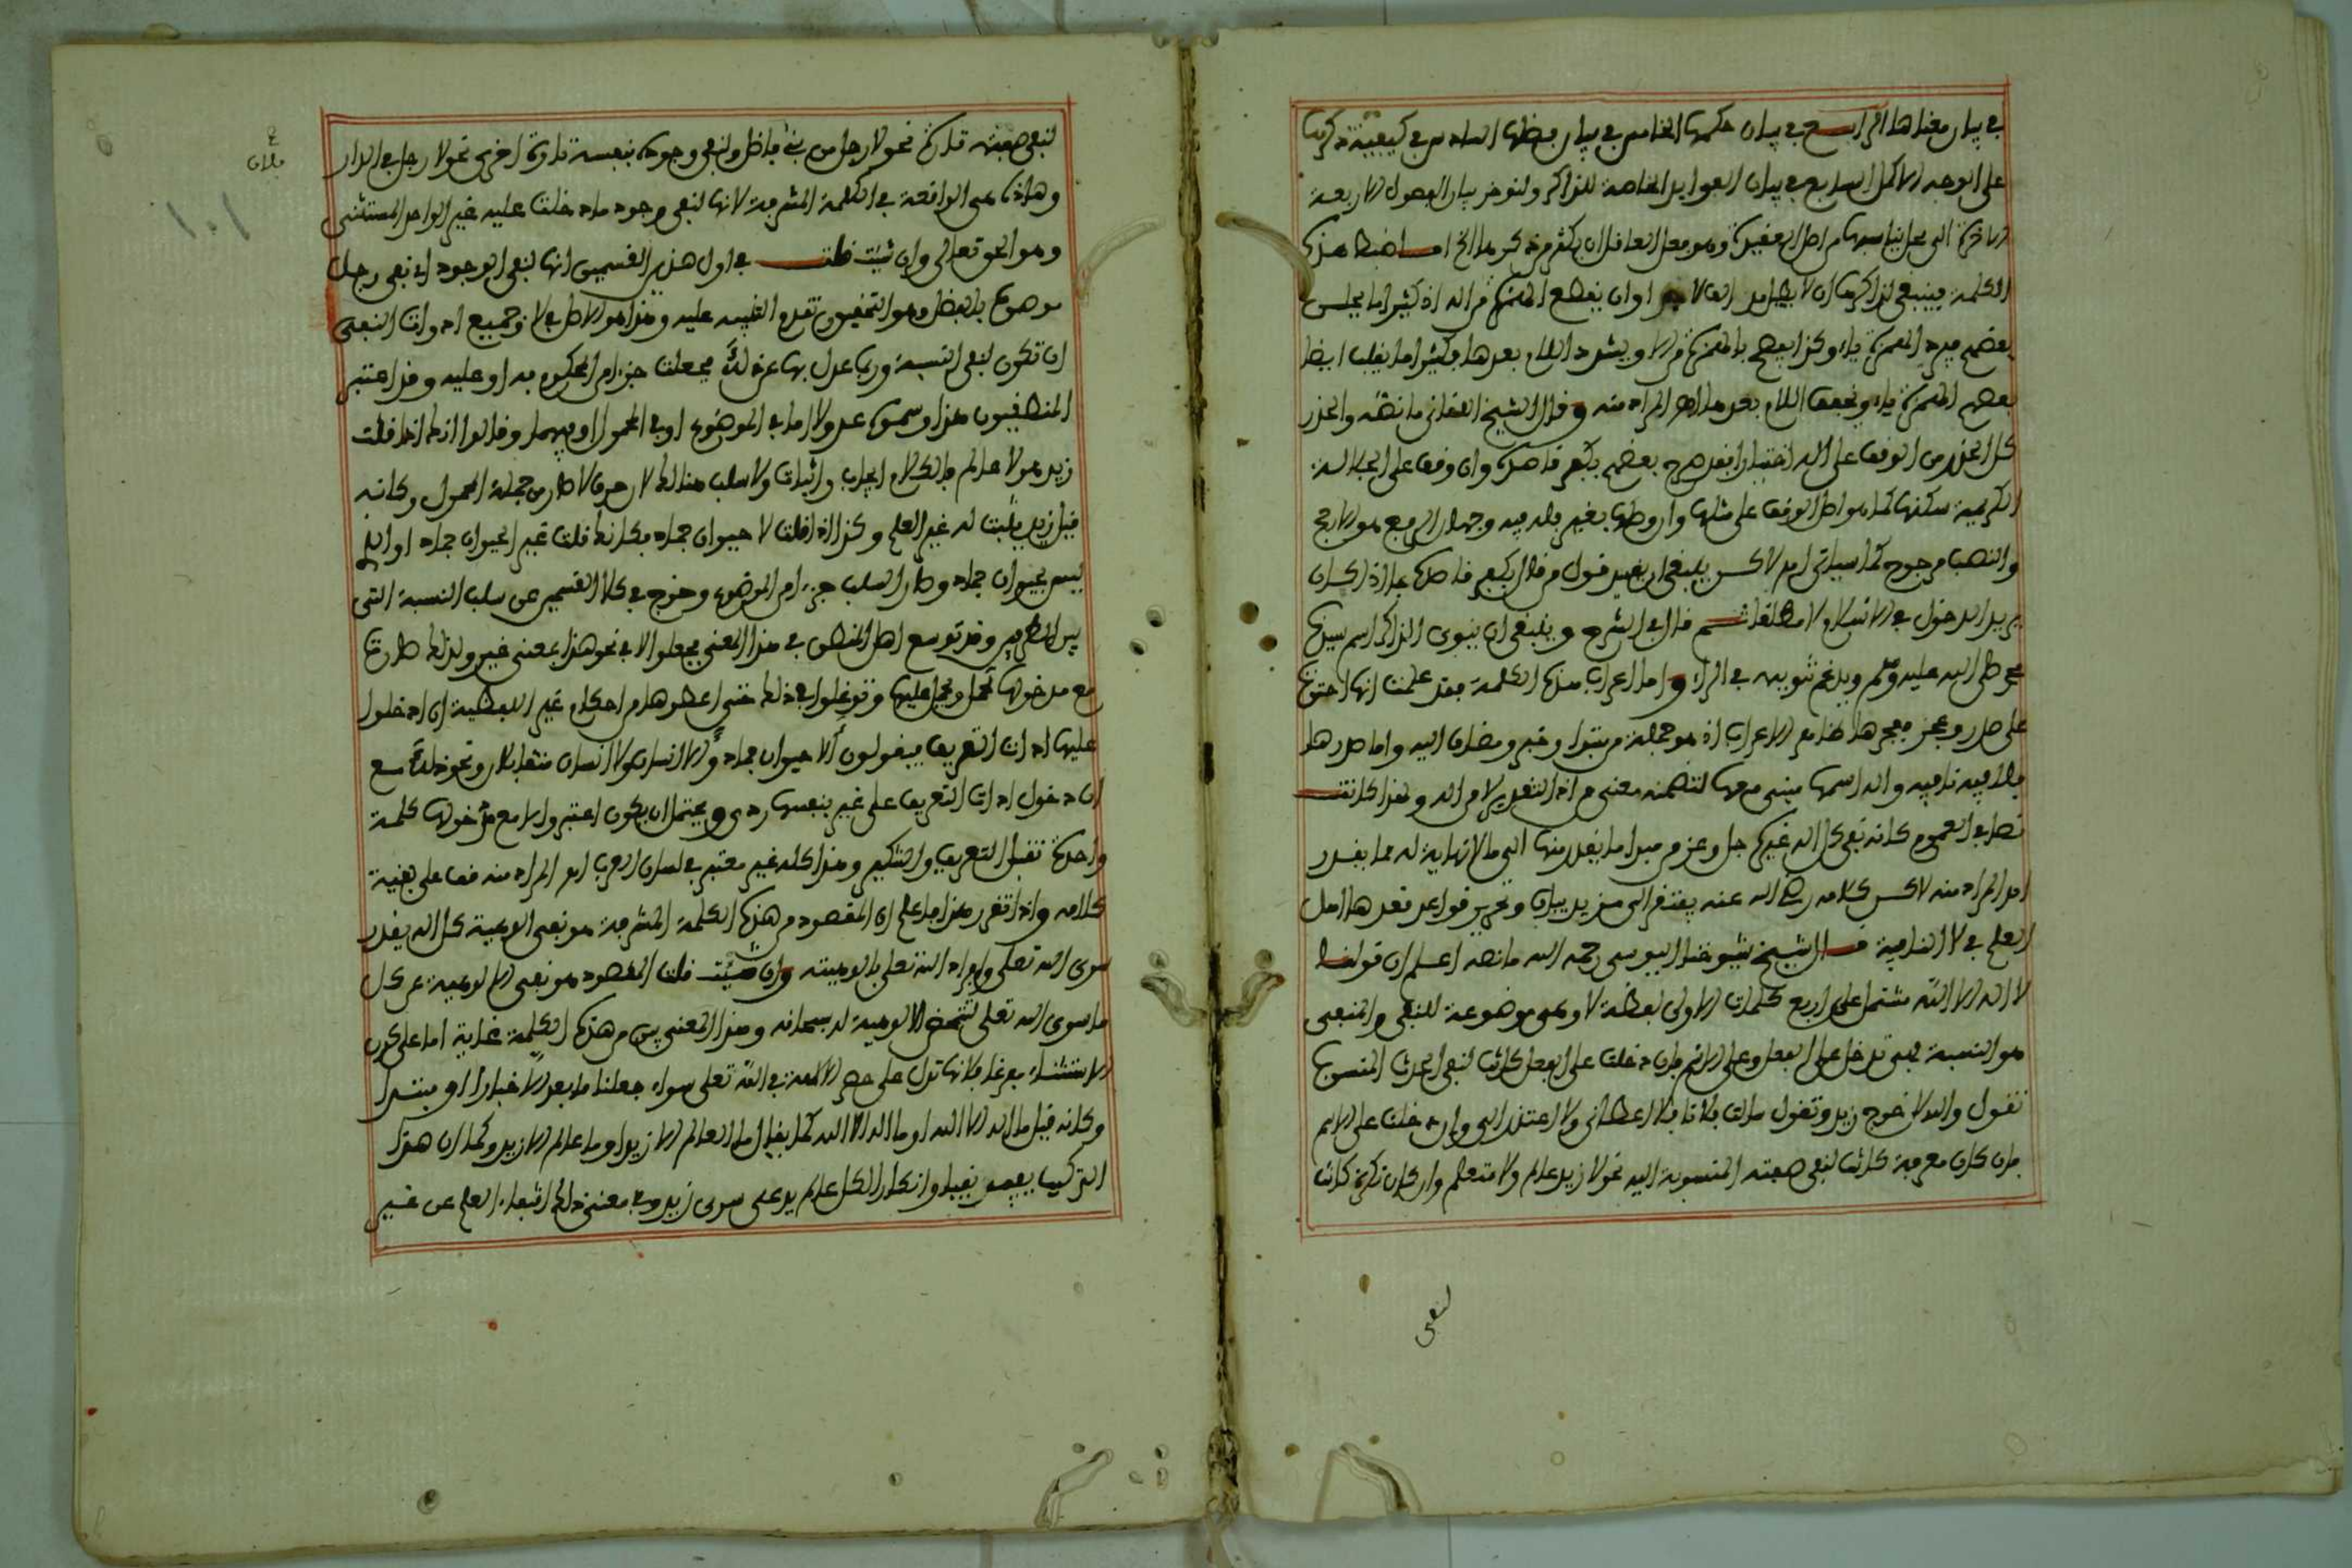 في بيان معناها الرابع في بيان حكمها الخامس في بيان فضلها السادس في كيفية ذكرها
على الوجه الاكمل السابع في بيان الفوايد الخاصة للذاكر ولنوخر بيان الفصول الاربعة
الاخيرة الى محل يناسبها من اصل العقيدة وهو فعلى العاقل ان يكثر من ذكرها الخ اما ضبط هذه
الكلمة فينبغي لذاكرها ان لا يطيل مد الف لا جدا وان يقطع الهمزة من اله اذ كثيرا ما يلحن
بعضهم فيرد الهمزة ياء وكذا يفصح بالهمزة من الا ويشدد اللام بعدها وكثيرا ما يغلب ايضا
بعضهم الهمزة ياء ويخفف اللام بعدها اهـ المراد منه وقال الشيخ اللقاني ما نصه والحذر
كل الحذر من الوقف على اله اختيارا فقد صرح بعضهم بكفر قاصده وان وقف على الجلالة
الكريمة سكنها كما هو اصل الوقف على مثلها وان وصلها بغيرها فله فيه وجهان الرفع وهو الارجح
والنصب مرجوح كما سياتي اهـ لاكن ينبغي ان يقيد قول من قال بكفر قاصده بما اذا كان
يريد الدخول في الاسلام لا مطلقا ثم قال في الشرح وينبغي ان ينوي الذاكر اسم سيدنا
محمد صلى الله عليه وسلم ويدغم تنوينه في الراء واما اعراب هذه الكلمة فقد علمت انها احتوت
على صدر وعجز فعجزها ظاهر الاعراب اذ هو جملة من مبتدا وخبر ومضاف اليه واما صدرها
فلا فيه نافية واله اسمها مبني معها لتضمنه معنى من اذ التقدير لا من اله ولهذا كانت
نصا في العموم كانه نفى كل اله غيره جل وعز من مبدا ما يقدر منها الى ما لا نهاية له مما يقدر
اهـ المراد منه لاكن كلامه رضي الله عنه يفتقر الى مزيد بيان وتحرير قواعد قعدها اهل
العلم في لا النافية قال الشيخ شيوخنا اليوسي رحمه الله ما نصه اعلم ان قولنا
لا اله الا الله مشتمل على اربع كلمات الاولى لفظة لا وهي موضوعة للنفي والمنفي
هو النسبة فهي تدخل على الفعل وعلى الاسم فان دخلت على الفعل كانت لنفي الحدث المنسوب
تقول والله لا خرج زيد وتقول سالت فلانا فلا اعطاني ولا اعتذر الي وان دخلت على الاسم
فان كان معرفة كانت لنفي صفته المنسوبة اليه نحو لا زيد عالم ولا متعلم وان كان نكرة كانت
لنفي
لنفي صفته تارة نحو لا رجل من بني فاضل ولنفي وجوده بنفسه تارة اخرى نحو لا رجل في الدار
وهاذه هي الواقعة في الكلمة المشرفة لانها لنفي وجود ما دخلت عليه غير الواحد المستثنى
وهو الحق تعالى وان شئت قلت في اول هذين القسمين انها لنفي الوجود اي نفي رجل
موصوف بالفضل وهو التحقيق تقدم التنبيه عليه وهذا هو الاصل في لا وجميع ادوات النفي
ان تكون لنفي النسبة وربما عدل بها عن ذلك فجعلت جزءا من المحكوم به او عليه وقد اعتبر
المنطقيون هذا وسموه عدولا اما في الموضوع او في المحمول او فيهما وقالوا انك اذا قلت
زيد هو لا عالم فالكلام ايجاب واثبات ولا سلب هنالك لان حرف لا صار من جملة المحمول وكانه
قيل زيد يثبت له غير العلم وكذا اذا قلت لا حيوان جماد فكانك قلت غير الحيوان جماد او الذي
ليس بحيوان جماد وصار السلب جزءا من الموضوع وخرج في كلا القسمين عن سلب النسبة التي
بين الطرفين وقد توسع اهل المنطق في هذا المعنى فجعلوا لا في نحو هذا بمعنى غير ولذلك صارت
مع مدخولها تحمل ويحمل عليها وتوغلوا في ذلك حتى اعطوها من احكام غير اللفظية ان ادخلوا
عليها ادات التعريف فيقولون الا حيوان جماد والا انسان ولا انسان متقابلان ونحو ذلك مع
ان دخول ادات التعريف على غير بنفسها ردي ويحتمل ان يكون اعتبروا لا مع مدخولها كلمة
واحدة تقبل التعريف والتنكير وهذا كله غير معتبر في لسان العرب اهـ المراد منه فف على بقية
كلامه واذا تقرر هذا فاعلم ان المقصود من هذه الكلمة المشرفة هو نفي الوهية كل اله يقدر
سوى الله تعلى وافراد الله تعلى بالوهيته وان شئت قلت المقصود هو نفي الالوهية عن كل
ما سوى الله تعلى لتتمحض الالوهية له سبحانه وهذا المعنى بين من هذه الكلمة غاية اما على كون
الاستثناء مفرغا فلانها تدل على حصر الالهة في الله تعلى سواء جعلنا ما بعد الا خبرا او مبتدا
وكانه قيل ما اله الا الله او ما الاله الا الله كما يقال ما العالم الا زيد او ما عالم الا زيد وكما ان هذا
التركيب يفهم نفيا وانكارا لكل عالم يدعى سوى زيد وفي معنى ذلك انتفاء العلم عن غير
فلان
١٠١